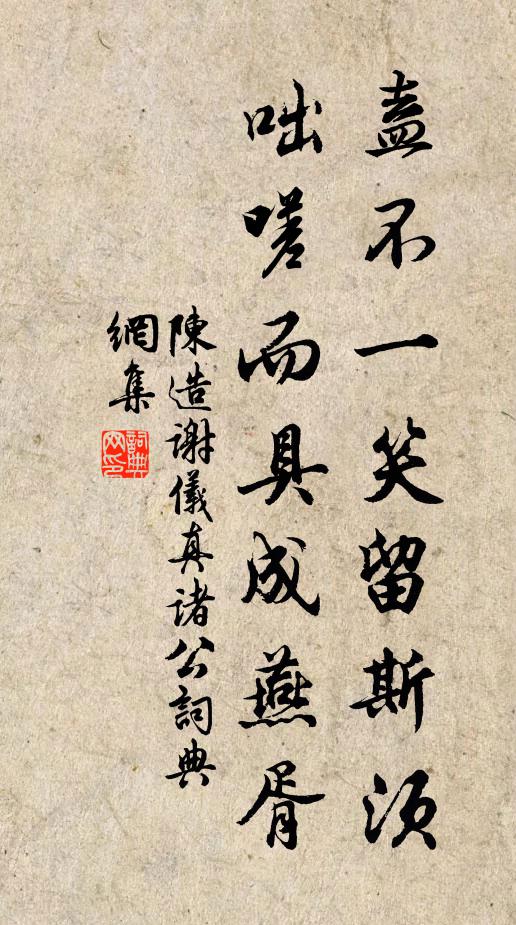 盍不一笑留斯須
咄嗟而具成燕胥
陳造謝儀真諸公詞典
網集
詞典網印